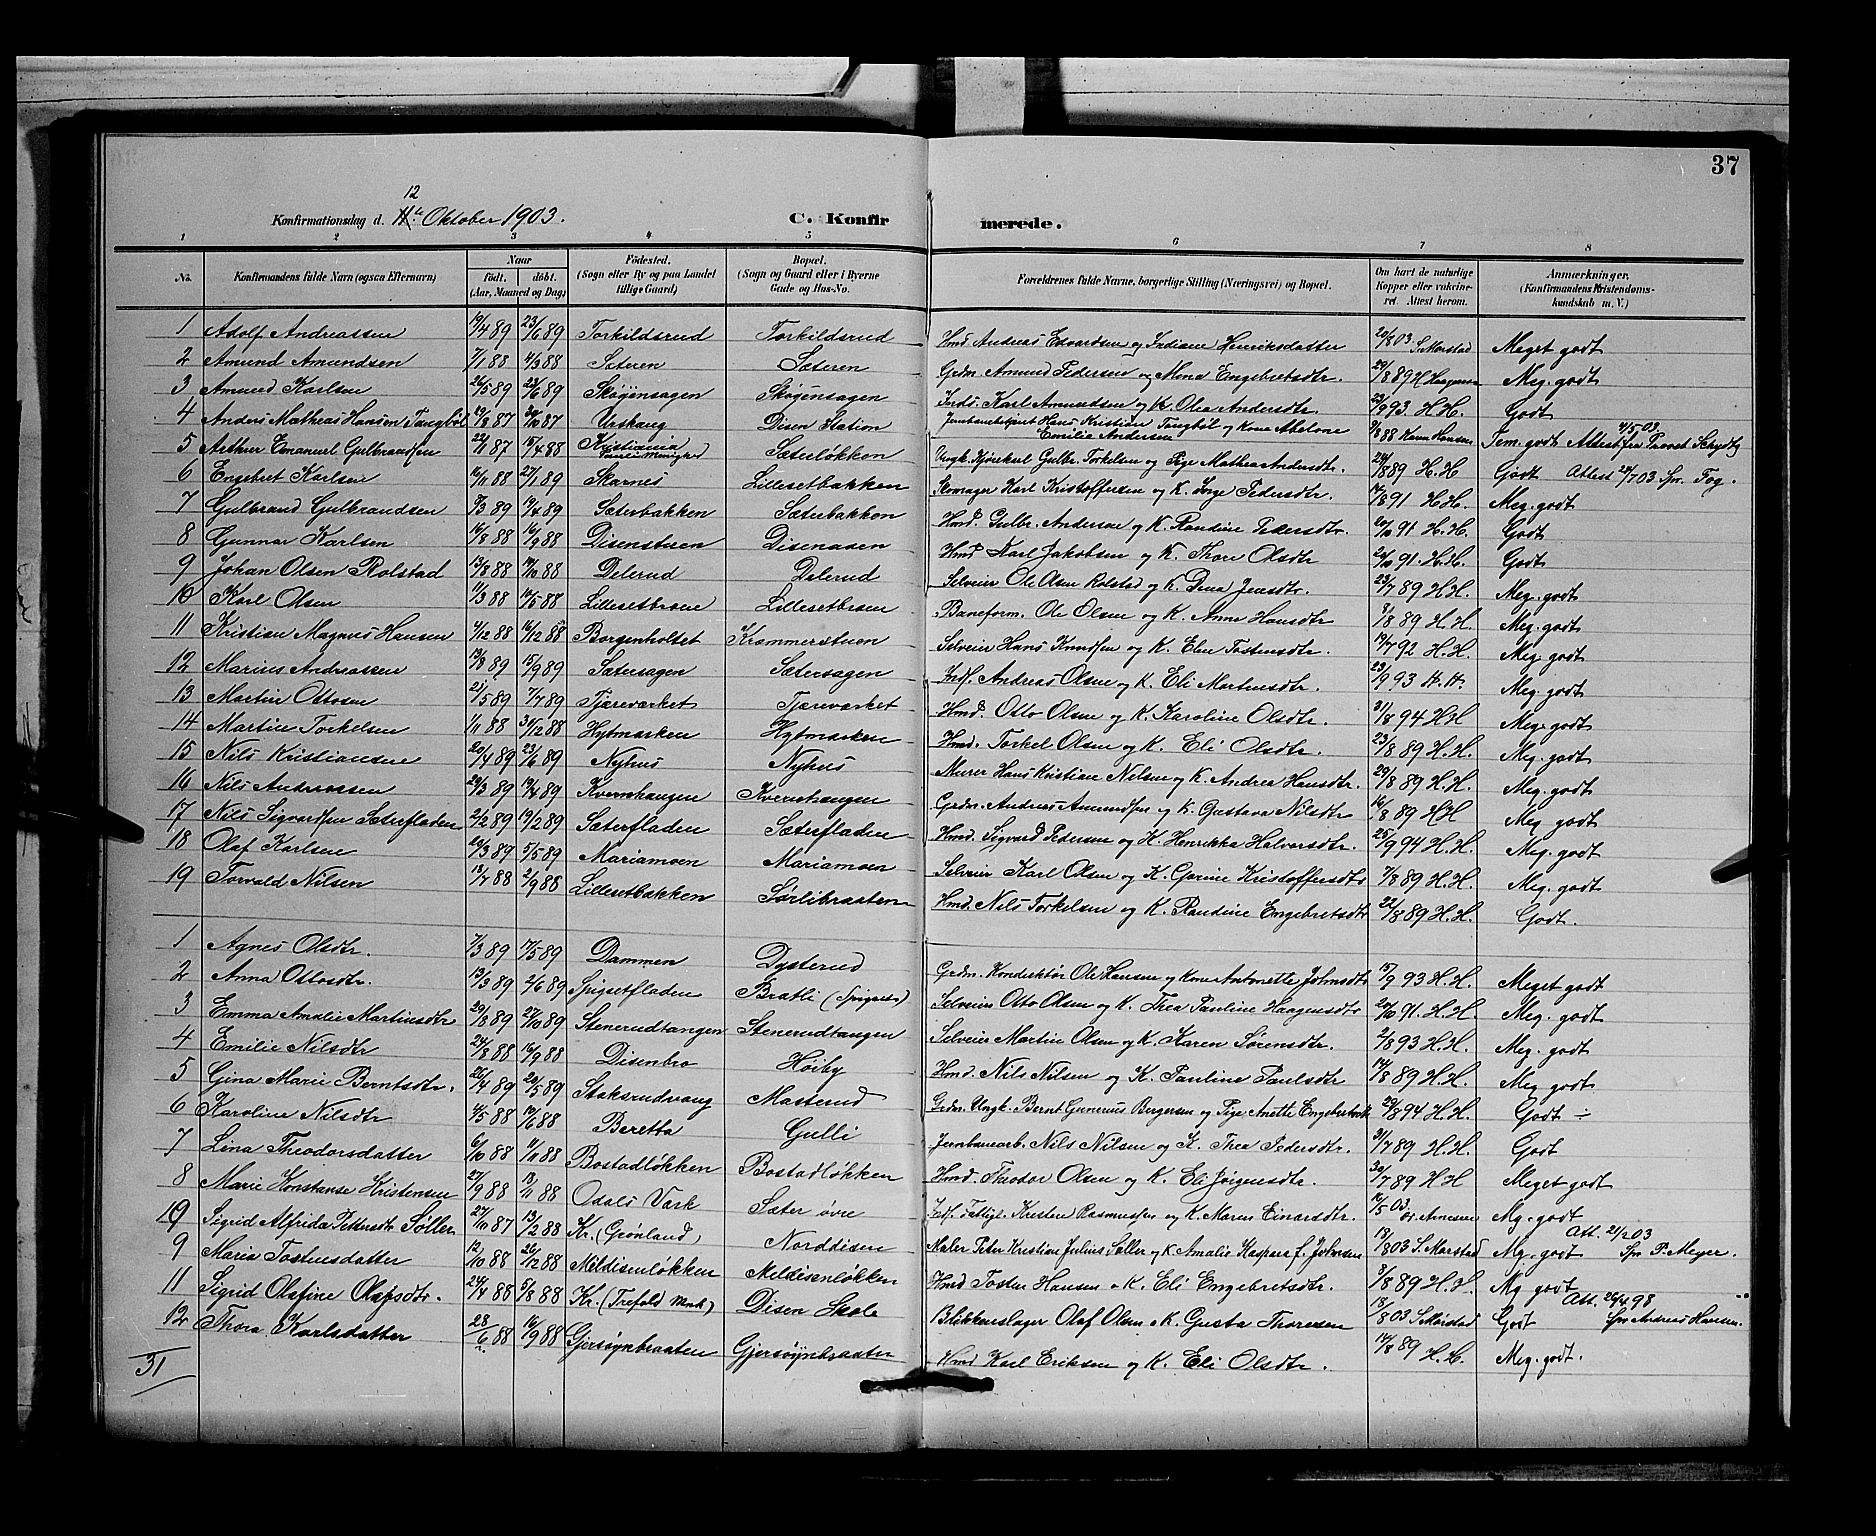 37
12
Konfirmationsdag d. 11te Oktober 1903. C. Konfirmerede.
1 2 3 4 5 6 7 8
No. Konfirmandens fulde Navn (ogsaa Efternavn) Naar født. døbt. (Aar, Maaned og Dag) Fødested. (Sogn eller By og paa Landet tillige Gaard) Bopæl. (Sogn og Gaard eller i Byerne Gade og Hus-No. Forældrenes fulde Navne, borgerlige Stilling (Næringsvei) og Bopæl. Om havt de naturlige Kopper eller vakcineret. Attest herom. Anmærkninger, (Konfirmandens Kristendomskundskab m. V.)
1 Adolf Andreassen 19/4 89 23/6 89 Torkildsrud Torkildsrud Hmd Andreas Edvardsen og Indiane Henriksdatter 20/8 03 S. Morstad Meget godt
2 Amund Amundsen 7/1 88 4/3 88 Sæteren Sæteren Grdm. Amund Pedersen og Mina Engebretsdtr. 29/8 89 H. Haagensen Meg. godt
3 Amund Karlsen 26/5 89 23/6 89 Skøgensagen Skøgensagen Inds. Karl Amundsen og K. Olia Andersdtr. 23/9 93. H. H. Godt
4 Anders Mathias Hansen Tangbøl 29/8 87 30/10 87 Urskaug Disen Station Jernbanebetjent Hans Kristian Tangbøl og Kone Abelone Emilie Andersen 9/8 88 Karen Hansen Tem. godt Attest 4/5 03 fra Provst Schydtz
5 Arthur Emanuel Gulbrandsen 22/11 87 15/4 88 Kristiania Sæterløkken Ungk. Kjørekarl Gulbr. Torkelsen og Pige Mathea Andersdtr. 24/8 89 H. H. Godt Attest 24/7 03 Spr. Fog.
6 Engebret Karlsen 16/11 88 27/1 89 Skarnes Lillesetbakken Skomager Karl Kristoffersen og K. Inge Pedersdtr. 14/8 91 H. H. Meg. godt
7 Gulbrand Gulbrandsen 10/3 89 19/4 89 Sæterbakken Sæterbakken Hmd. Gulbr. Andersen og K. Randine Pedersdtr. 20/10 91. H. H. Godt
8 Gunnar Karlsen 16/8 88 16/9 88 Disenstuen Disenaasen Hmd Karl Jakobsen og K. Thore Olsdtr 20/10 91. H. H. Godt
9 Johan Olsen Rolstad 13/8 88 14/10 88 Delerud Delerud Selveier Ole Olsen Rolstad og K. Dina Jensdtr. 23/7 89 H. H. Meg. godt
10 Karl Olsen 1/3 88 10/5 88 Lillesetbroen Lillesetbroen Baneform. Ole Olsen og K. Anne Hansdtr 3/8 89 H. H. Meg. godt
11 Kristian Magnus Hansen 4/12 88 16/12 88 Borgenholtet Krammerstuen Selveier Hans Knudsen og K. Eline Tostensdtr. 19/7 92 H. H. Meg. godt
12 Marius Andreassen 13/8 89 15/9 89 Sætersagen Sætersagen Inds. Andreas Olsen og K. Eli Martinsdtr. 23/9 93 H. H. Meg. godt
13 Martin Ottosen 21/5 89 7/7 89 Tjæreværket Tjæreværket Hmd. Otto Olsen og K. Karoline Olsdtr. 31/8 94 H H Meg. godt
14 Martin Torkelsen 1/11 88 30/12 88 Hytmarken Hytmarken Hmd. Torkel Olsen og K. Eli Olsdtr. 23/8 89 H. H. Meg. godt
15 Nils Kristiansen 20/4 89 23/6 89 Nyhus Nyhus Murer Hans Kristian Nilsen og K. Andrea Hansdtr. 29/8 89 H. H. Meg. godt
16 Nils Andreassen 22/3 89 19/4 89 Kvernhaugen Kvernhaugen Grdm. Andreas Amundsen og K. Gustava Nilsdtr 16/8 89 H H Meg godt
17 Nils Sigvardsen Sæterfladen 2/2 89 19/2 89 Sæterfladen Sæterfladen Hmd. Sigvard Pedersen og K. Henrikka Halvorsdtr. 25/9 94 H. H. Meg. godt
18 Olaf Karlsen 20/3 89 5/5 89 Mariamoen Mariamoen Selveier Karl Olsen og K. Gorine Kristoffersdtr 7/8 89 H. H. Meg. godt
19 Torvald Nilsen 18/7 88 2/9 88 Lillesetbakken Sørlibraaten Hmd. Nils Torkelsen og K. Randine Engebretsdtr 22/8 89 H. H. Godt.
1 Agnes Olsdtr. 7/3 89 17/5 89 Dammen Dysterud Grdm. Konduktør Ole Hansen og Kone Antonette Johnsdtr 15/9 93 H. H. Meget godt
2 Anna Ottosdtr. 13/3 89 2/6 89 Spigsetfladen Bratli Selveier Otto Olsen og K. Thea Pauline Haagensdtr 20/10 91. H. H. Meg. godt
3 Emma Amalie Martinsdtr 29/8 89 27/10 89 Stenerudtangen Stenerudtangen Selveier Martin Olsen og K. Karen Sørensdtr. 2/8 93 H. H. Meg. godt
4 Emilie Nilsdtr 24/8 88 16/9 88 Disenbro Høiby Hmd. Nils Nilsen og K. Pauline Paulsdtr 14/8 89 H. H. Meg godt
5 Gina Marie Berntsdtr. 26/4 89 20/5 89 Staksrudvang Masterud Grdm. Ungk. Bernt Gunerius Bergersen og Pige Anette Engebretsdtr 29/8 94 H. H. Godt ÷
6 Karoline Nilsdtr 4/5 88 10/6 88 Beretta Gulli Jernbanearb. Nils Nilsen og K. Thea Pedersdtr. 31/7 89 H. H. Godt
7 Lina Theodorsdatter 6/10 88 11/11 88 Bostadløkken Bostadløkken Hmd. Theodor Olsen og K. Eli Jørgensdtr 30/7 89 H H Meget godt
8 Marie Konstanse Kristensen 27/9 88 18/11 88 Odals Værk Sæter øvre Inds. Fattigl. Kristen Rasmussen og K. Maren Einarsdtr. 10/5 03 Or. Arnesen Mg. godt
10 Sigrid Alfrida Pettersdtr Søller 27/10 87 13/2 88 Kr. (Grønland) Norddisen Maler Peter Kristian Julius Søller og K. Amalie Kaspara f. Johnsen 13/8 03 S. Morstad Mg. godt Att. 21/2 03 Spr P. Meyer.
9 Maria Tostensdatter 12/10 88 26/12 88 Mildisenløkken Meldisenløkken Hmd Tosten Hansen o K. Eli Engebretsdtr. 8/8 89 H. H. Mg godt
11 Sigrid Olafine Olafsdtr. 24/4 88 5/8 88 Kr. (Trefold. Menh) Disen Skole Blikkenslager Olaf Olsen o K. Gusta Thoresen 18/8 03 S. Morstad Godt Att. 26/4 98 Spr Andreas Hansen.
12 Thora Karlsdatter 28/6 88 16/9 88 Gjersøynbraaten Gjersøynbraaten Hmd Karl Eriksen og K. Eli Olsdtr. 14/8 89 H. H. Meg. godt.
31